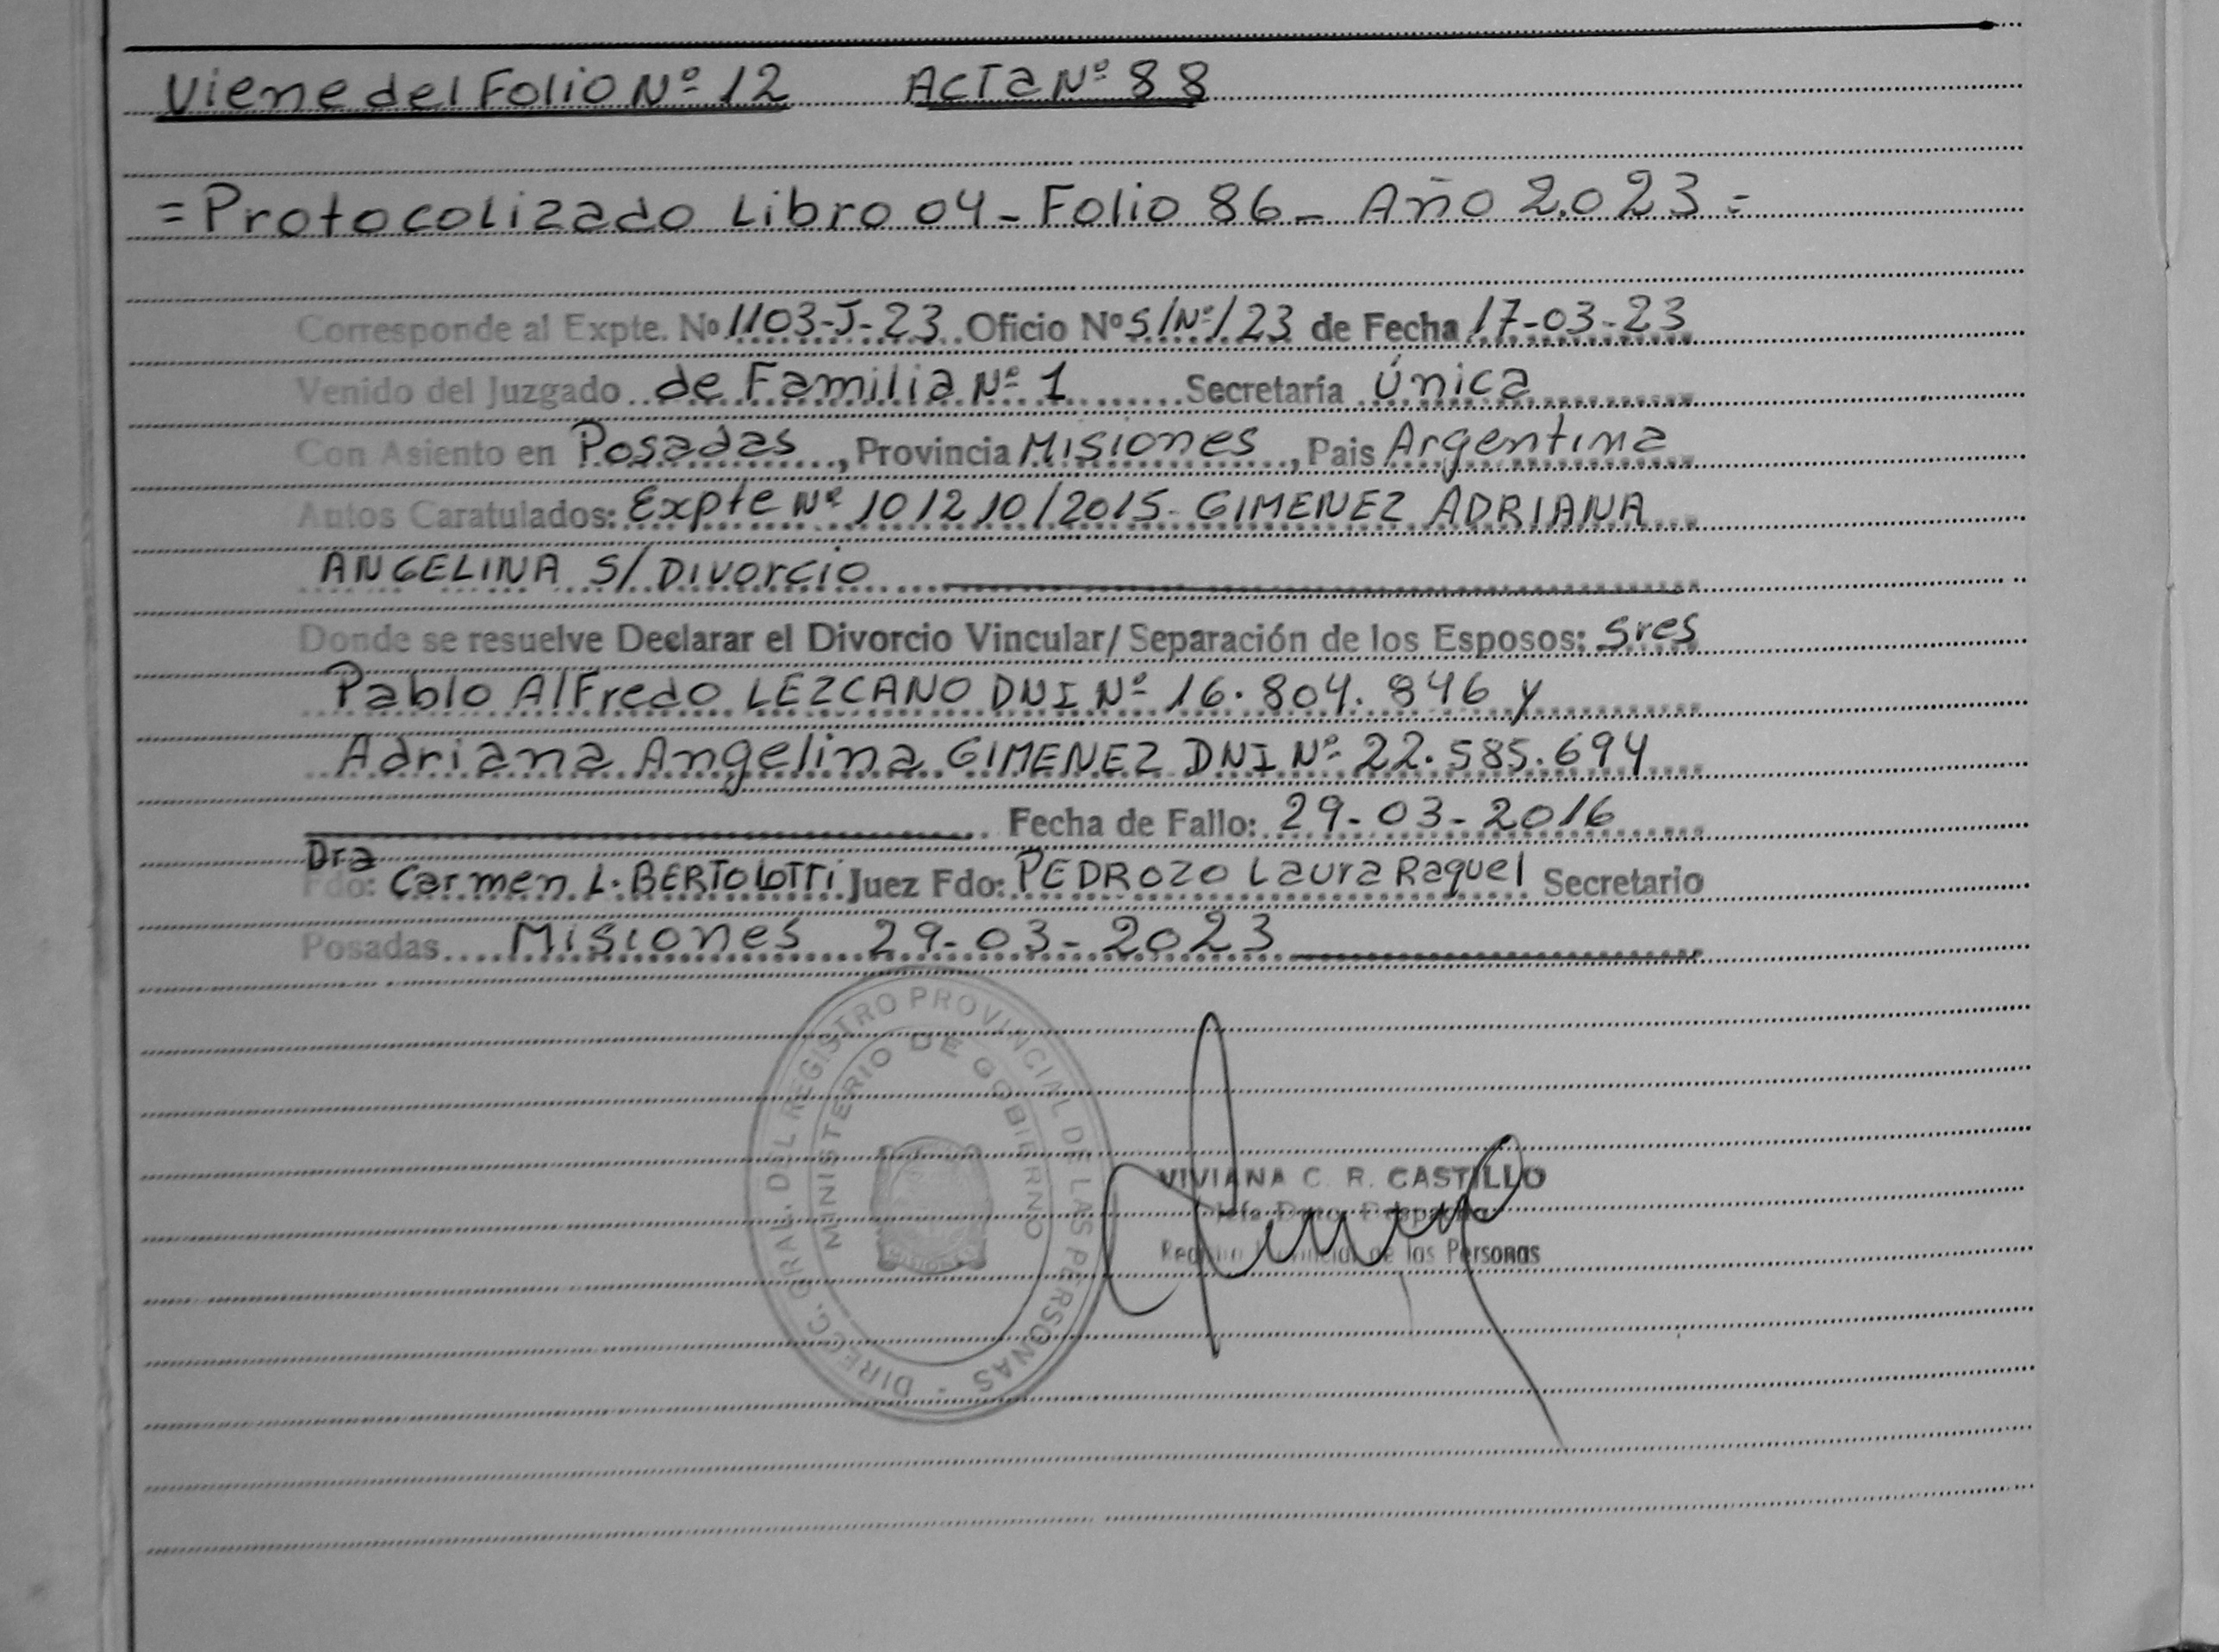 Viene del Folio Nº 12 Acta Nº 88
= Protocolizado Libro 04 - Folio 86 - Año 2.023 =
Corresponde al Expte. Nº 1103-J-23 Oficio Nº S/Nº/23 de Fecha 17-03-23
Venido del Juzgado de Familia Nº 1 Secretaría Única
Con Asiento en Posadas, Provincia Misiones, Pais Argentina
Autos Caratulados: Expte Nº 101210/2015 - GIMENEZ ADRIANA
ANGELINA S/ Divorcio
Donde se resuelve Declarar el Divorcio Vincular/ Separación de los Esposos: Sres
Pablo Alfredo LEZCANO DNI Nº 16.804.846 y
Adriana Angelina GIMENEZ DNI Nº 22.585.694
Fecha de Fallo: 29-03-2016
Dra
Fdo: Carmen L. BERTOLOTTI Juez Fdo: PEDROZO Laura Raquel Secretario
Posadas Misiones 29-03-2023
DIRECC. GRAL. DEL REGISTRO PROVINCIAL DE LAS PERSONAS
MINISTERIO DE GOBIERNO
MISIONES
VIVIANA C. R. CASTILLO
Jefa Dpto. Despacho
Registro Provincial de las Personas